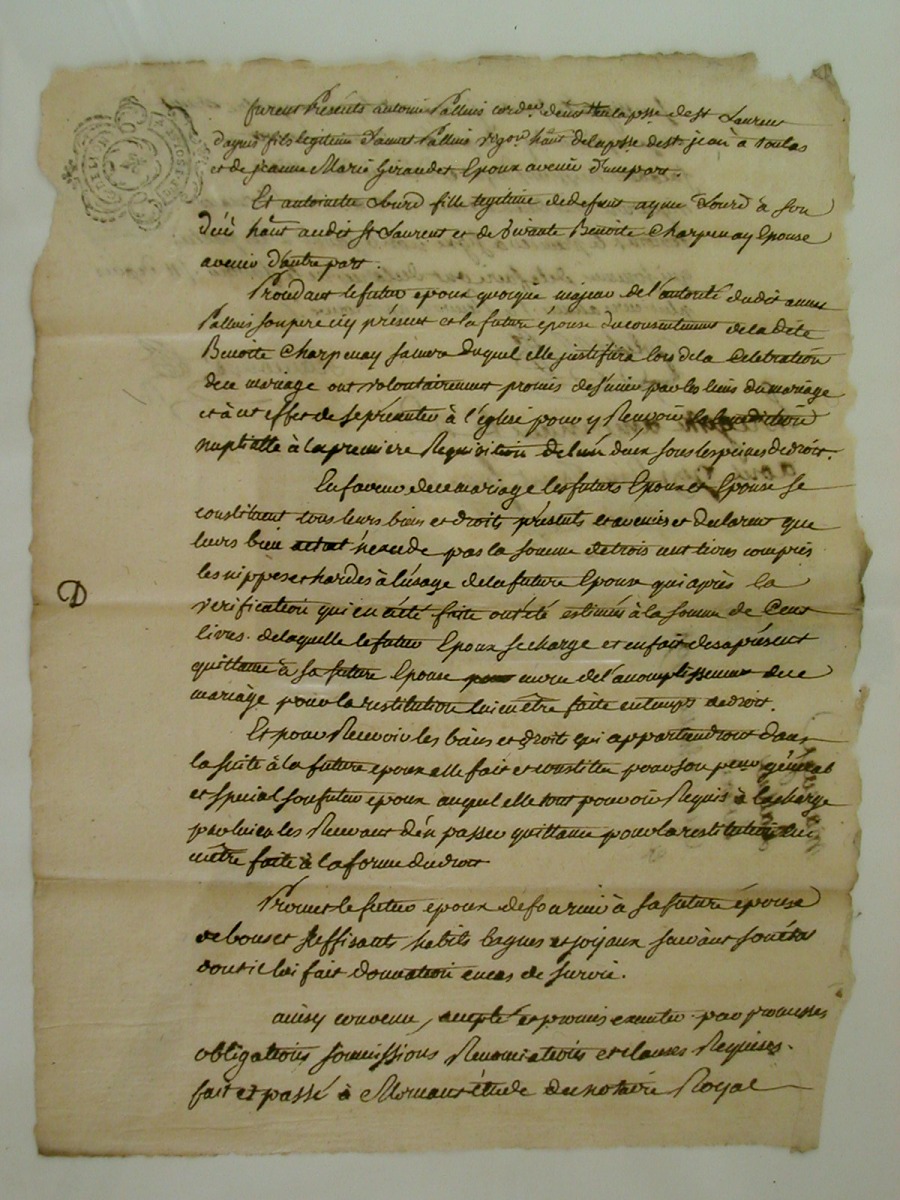 furent Présents antoine Palluis cord.er demt en la psse de st Laurent
d'agny fils legitime d'amet Palluis vigon habt de la psse de st jean à Toulas
et de jeanne Marie Giraudet Epoux avenir d'une part.
Et antoinette fille legitime de defunt ayme à son
habt audit st Laurent et de vivante Benoite Charpenay Epouse
avenir d'autre part.
Procédant le futur epoux quoique majeur de l'autorité dudit amet
Palluis son pere icy présent et la future épouse du consentement de la dite
Benoite Charpenay sa mere duquel elle justifira lors de la Celebration
de ce mariage ont volontairement promis de s'unir par les liens du mariage
et à cet effet de se présenter à l'église pour y Recevoir la benediction
nuptialle à la premiere Requisition de l'un d'eux sous les peines de droit.
En faveur de ce mariage les futurs Epoux et Epouse se
constituent tous leurs biens et droits présents et avenirs et declarent que
leurs bien n'excede pas la somme de trois cent livres compris
les nippes et hardes à l'usage de la future Epouse qui après la
verification qui en a été faite ont été estimés à la somme de Cent
livres. de laquelle le futur Epoux se charge et en fait des à présent
quittance à sa future Epouse au moyen de l'accomplissement de ce
mariage pour la restitution lui en être faite en temps de droit.
Et pour Recevoir les biens et droit qui appartiendront dans
la suite à la future epouse elle fait et constitue pour son procr général
et special son futur epoux auquel elle tout pouvoir Requis à la charge
par lui en les Recevant d'en passer quittance pour la restitution lui
en être faite à la forme du droit
Promet le futur epoux de fournir à sa future épouse
de bons et suffisants habits bagues et joyaux suivant son état
dont il lui fait donnation en cas de survie.
ainsy convenu, accepté et promis executer par promesses
obligations soumissions Renonciations et clauses Requises.
fait et passé à Mornant étude du notaire Royal